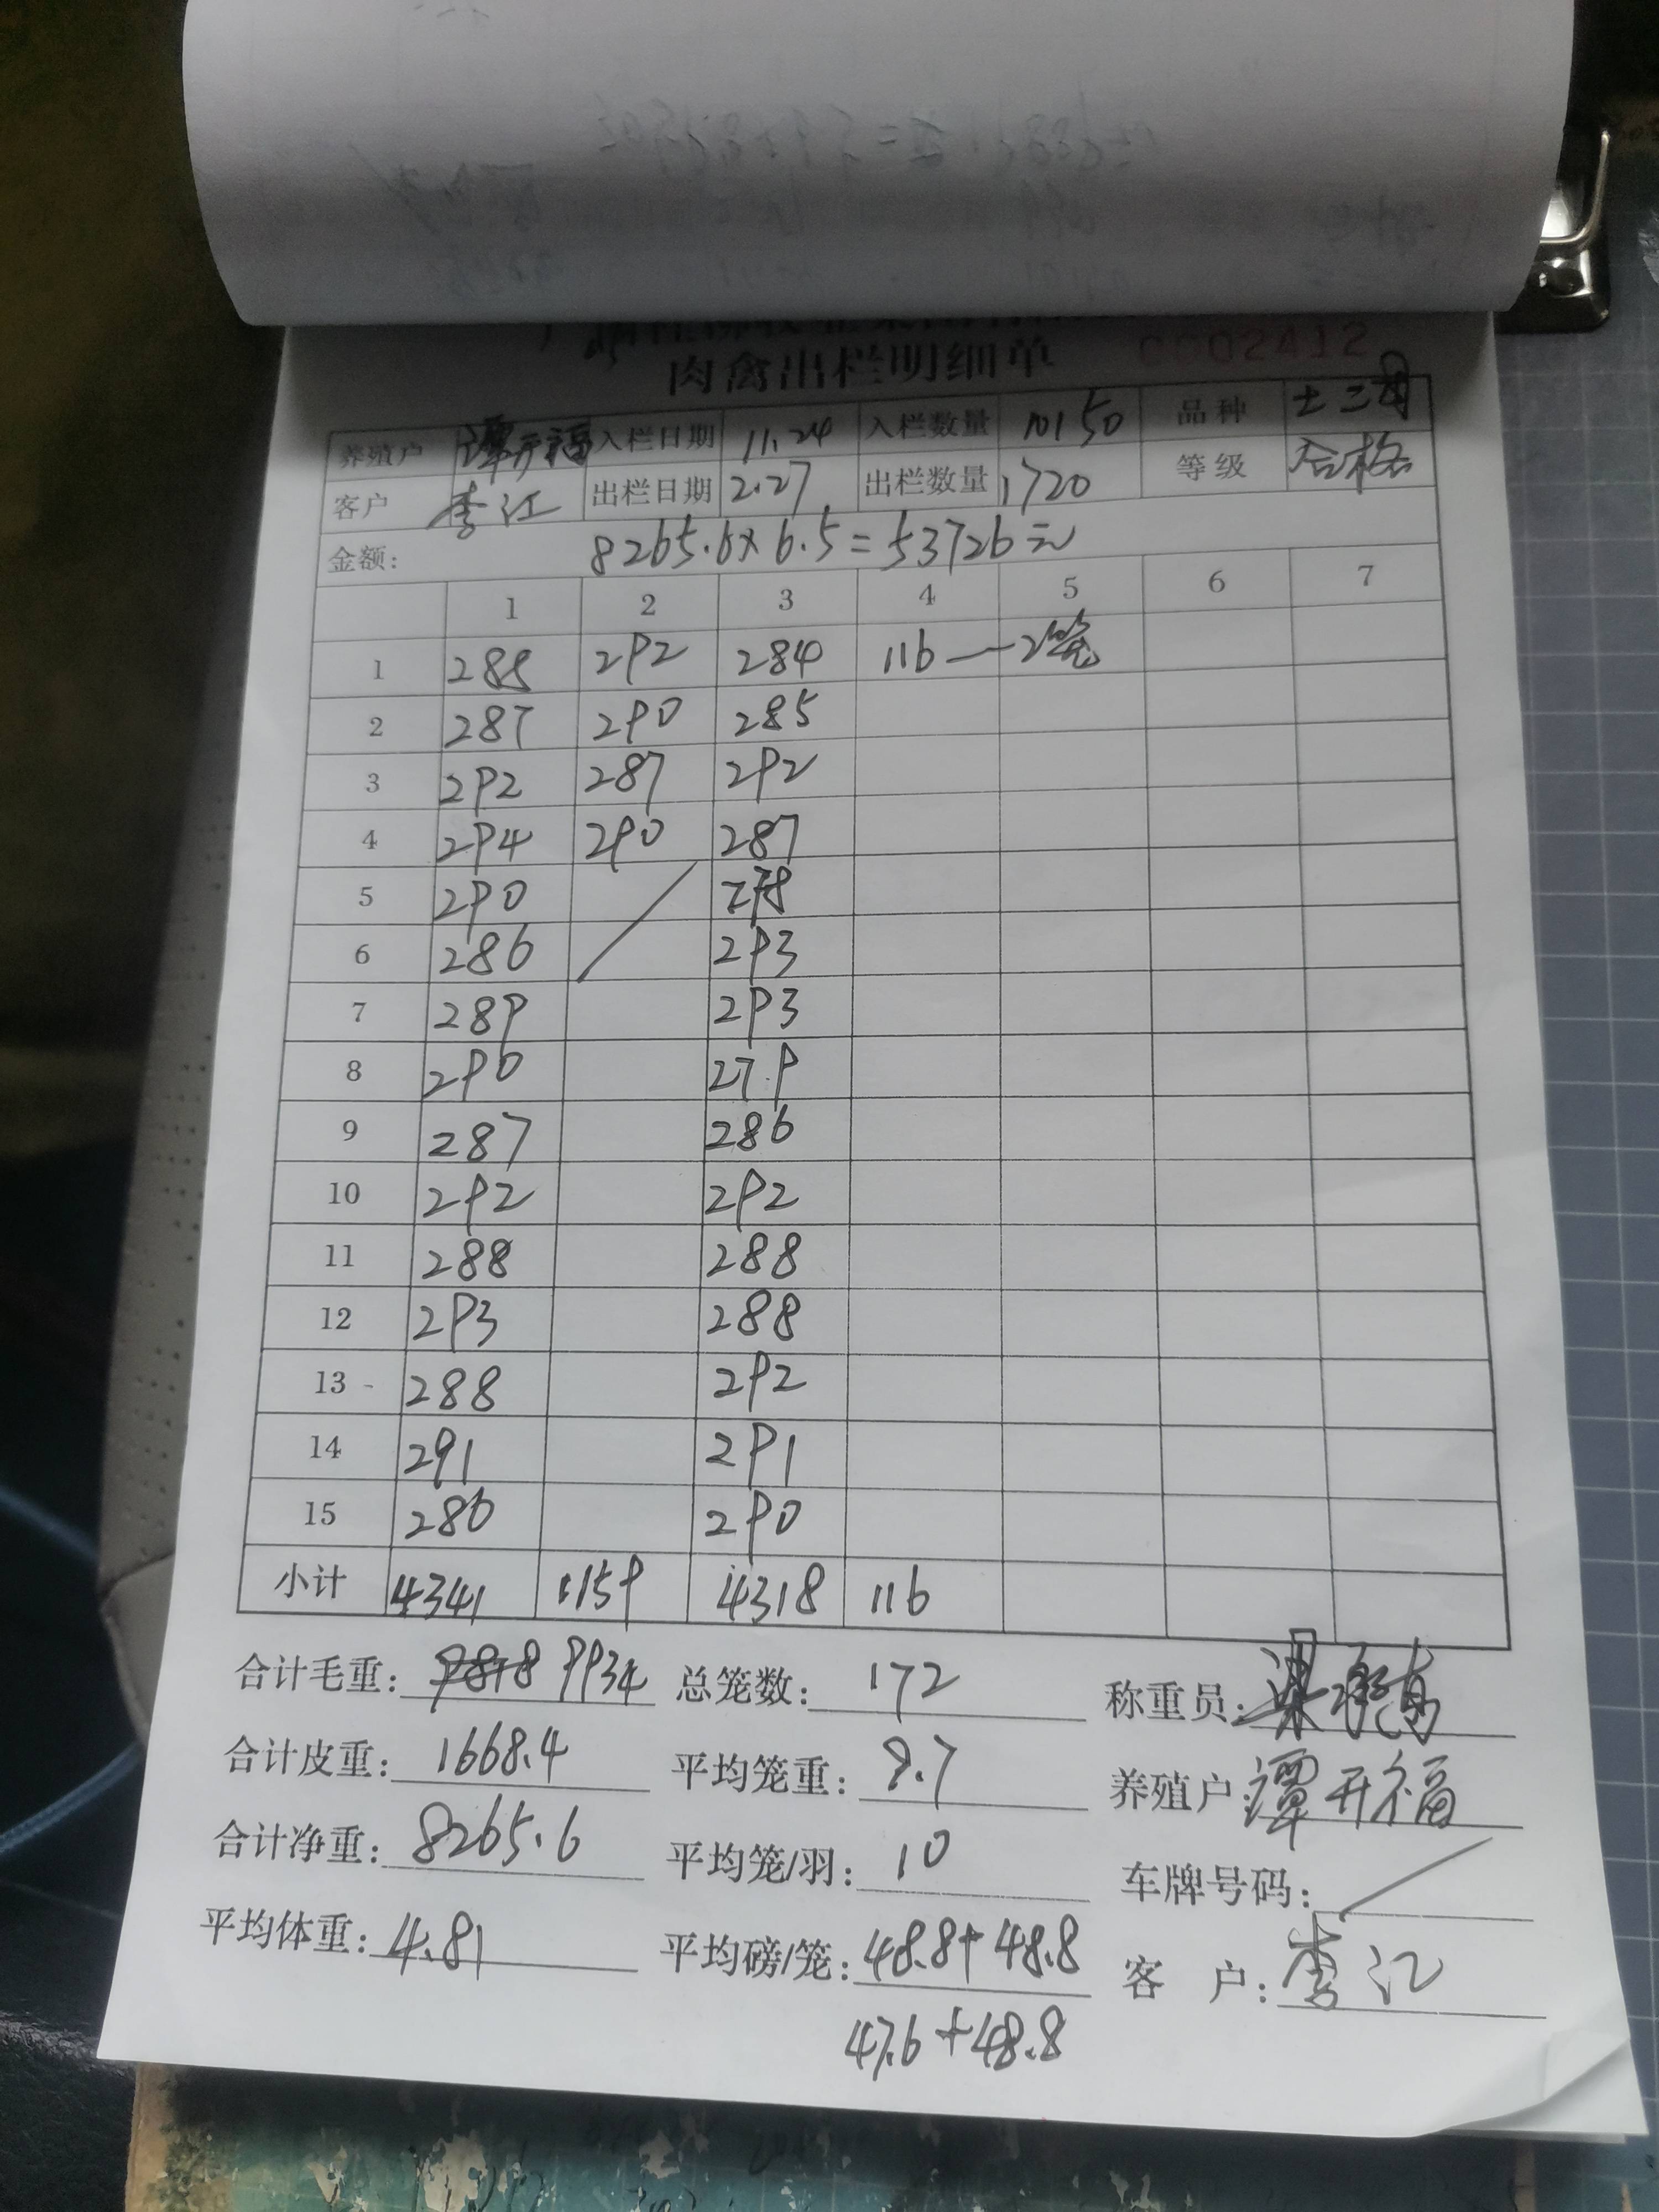 肉禽出栏明细单 0002412
养殖户 谭开福 入栏日期 11.24 入栏数量 10150 品种 土二
客户 李江 出栏日期 2.27 出栏数量 1720 等级 合格
金额: 8265.6×6.5=53726元
1 2 3 4 5 6 7
1 288 292 284 116—2笼
2 287 290 285
3 292 287 292
4 294 290 287
5 290 278
6 286 293
7 289 293
8 290 279
9 287 286
10 292 292
11 288 288
12 293 288
13 288 292
14 291 291
15 286 290
小计 4341 1159 4318 116
合计毛重: 9934 总笼数: 172 称重员:
合计皮重: 1668.4 平均笼重: 9.7 养殖户: 谭开福
合计净重: 8265.6 平均笼/羽: 10 车牌号码:
平均体重: 4.81 平均磅/笼: 48.8+48.8 客 户: 李江
47.6+48.8